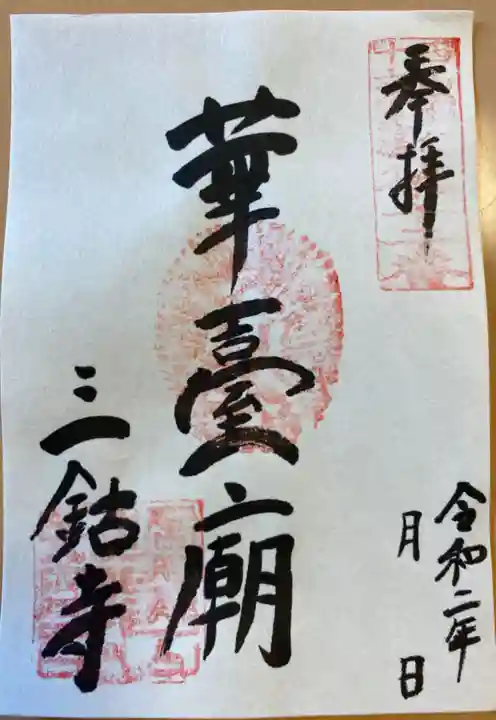 奉拝
華臺廟
三鈷寺
令和二年
月 日